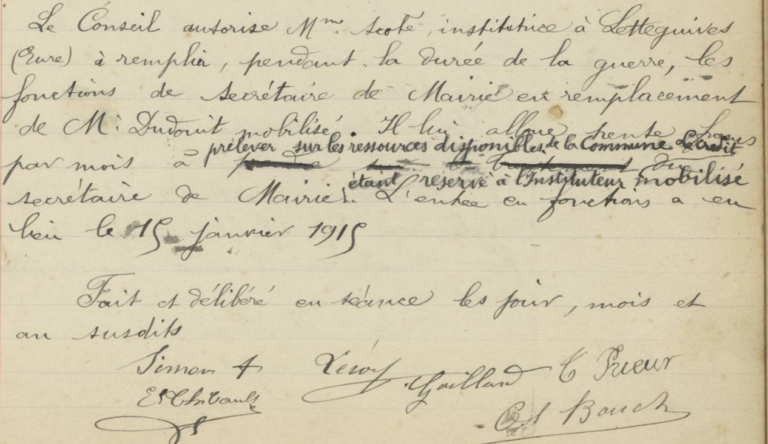 Le Conseil autorise Mme Scoté, institutrice à Letteguives
(Eure) à remplir, pendant la durée de la guerre, les
fonctions de secrétaire de Mairie en remplacement
de Mr Dudouit mobilisé. Il lui alloue trente francs
prélever sur les ressources disponibles de la Commune le crédit
par mois à
étant reservé à l'Instituteur mobilisé
secrétaire de Mairie. L'entrée en fonctions a eu
lieu le 15 janvier 1915
Fait et délibéré en séance les jour, mois et
an susdits
Simon Leroy Gaillard C Prieur
E. Thibault